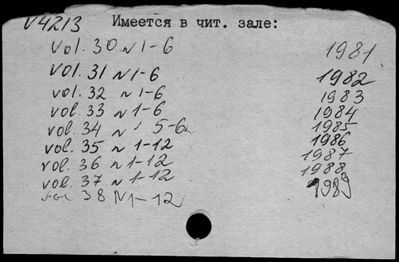 V4213 Имеется в чит. зале:
vol. 30 N 1-6 1981
vol. 31 N 1-6 1982
vol. 32 N 1-6 1983
vol. 33 N 1-6 1984
vol. 34 N 5-6 1985
vol. 35 N 1-12 1986
vol. 36 N 1-12 1987
vol. 37 N 1-12 1988
vol 38 N 1-12 1989